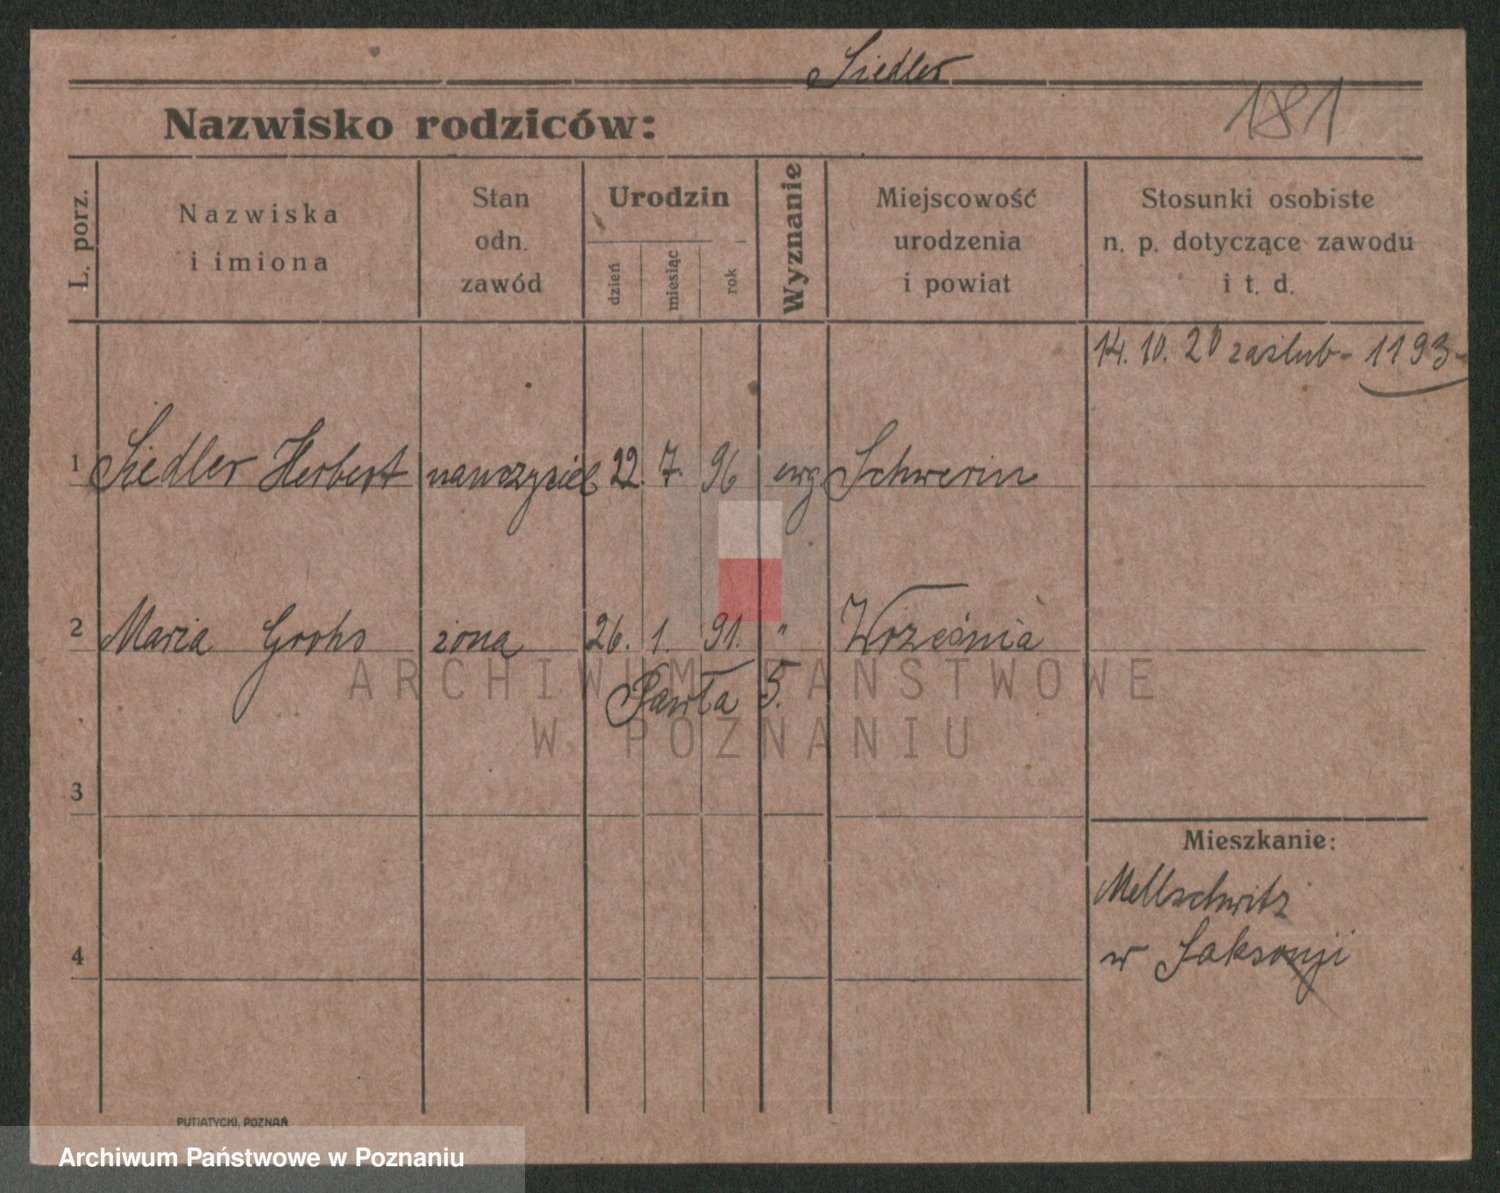 Siedler
Nazwisko rodziców:
181
L. porz.
Nazwiska i imiona
Stan odn. zawód
Urodzin
dzień
miesiąc
rok
Wyznanie
Miejscowość urodzenia i powiat
Stosunki osobiste n. p. dotyczące zawodu i t. d.
14. 10. 20 zaślub- 1193-
1 Siedler Herbert nauczyciel 22. 7. 96 ewg Schwerin
2 Maria Grohs żona 26. 1. 91. " Września
Pawła 5.
ARCHIWUM PAŃSTWOWE
W POZNANIU
3
Mieszkanie:
Mellschwitz
4
w Saksonji
PUTIATYCKI, POZNAŃ
Archiwum Państwowe w Poznaniu